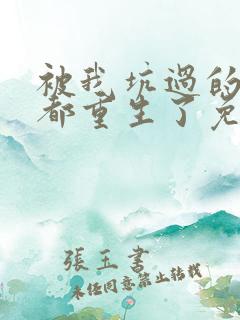 被我坑过的
都重生了免
張玉書
未经同意禁止转载